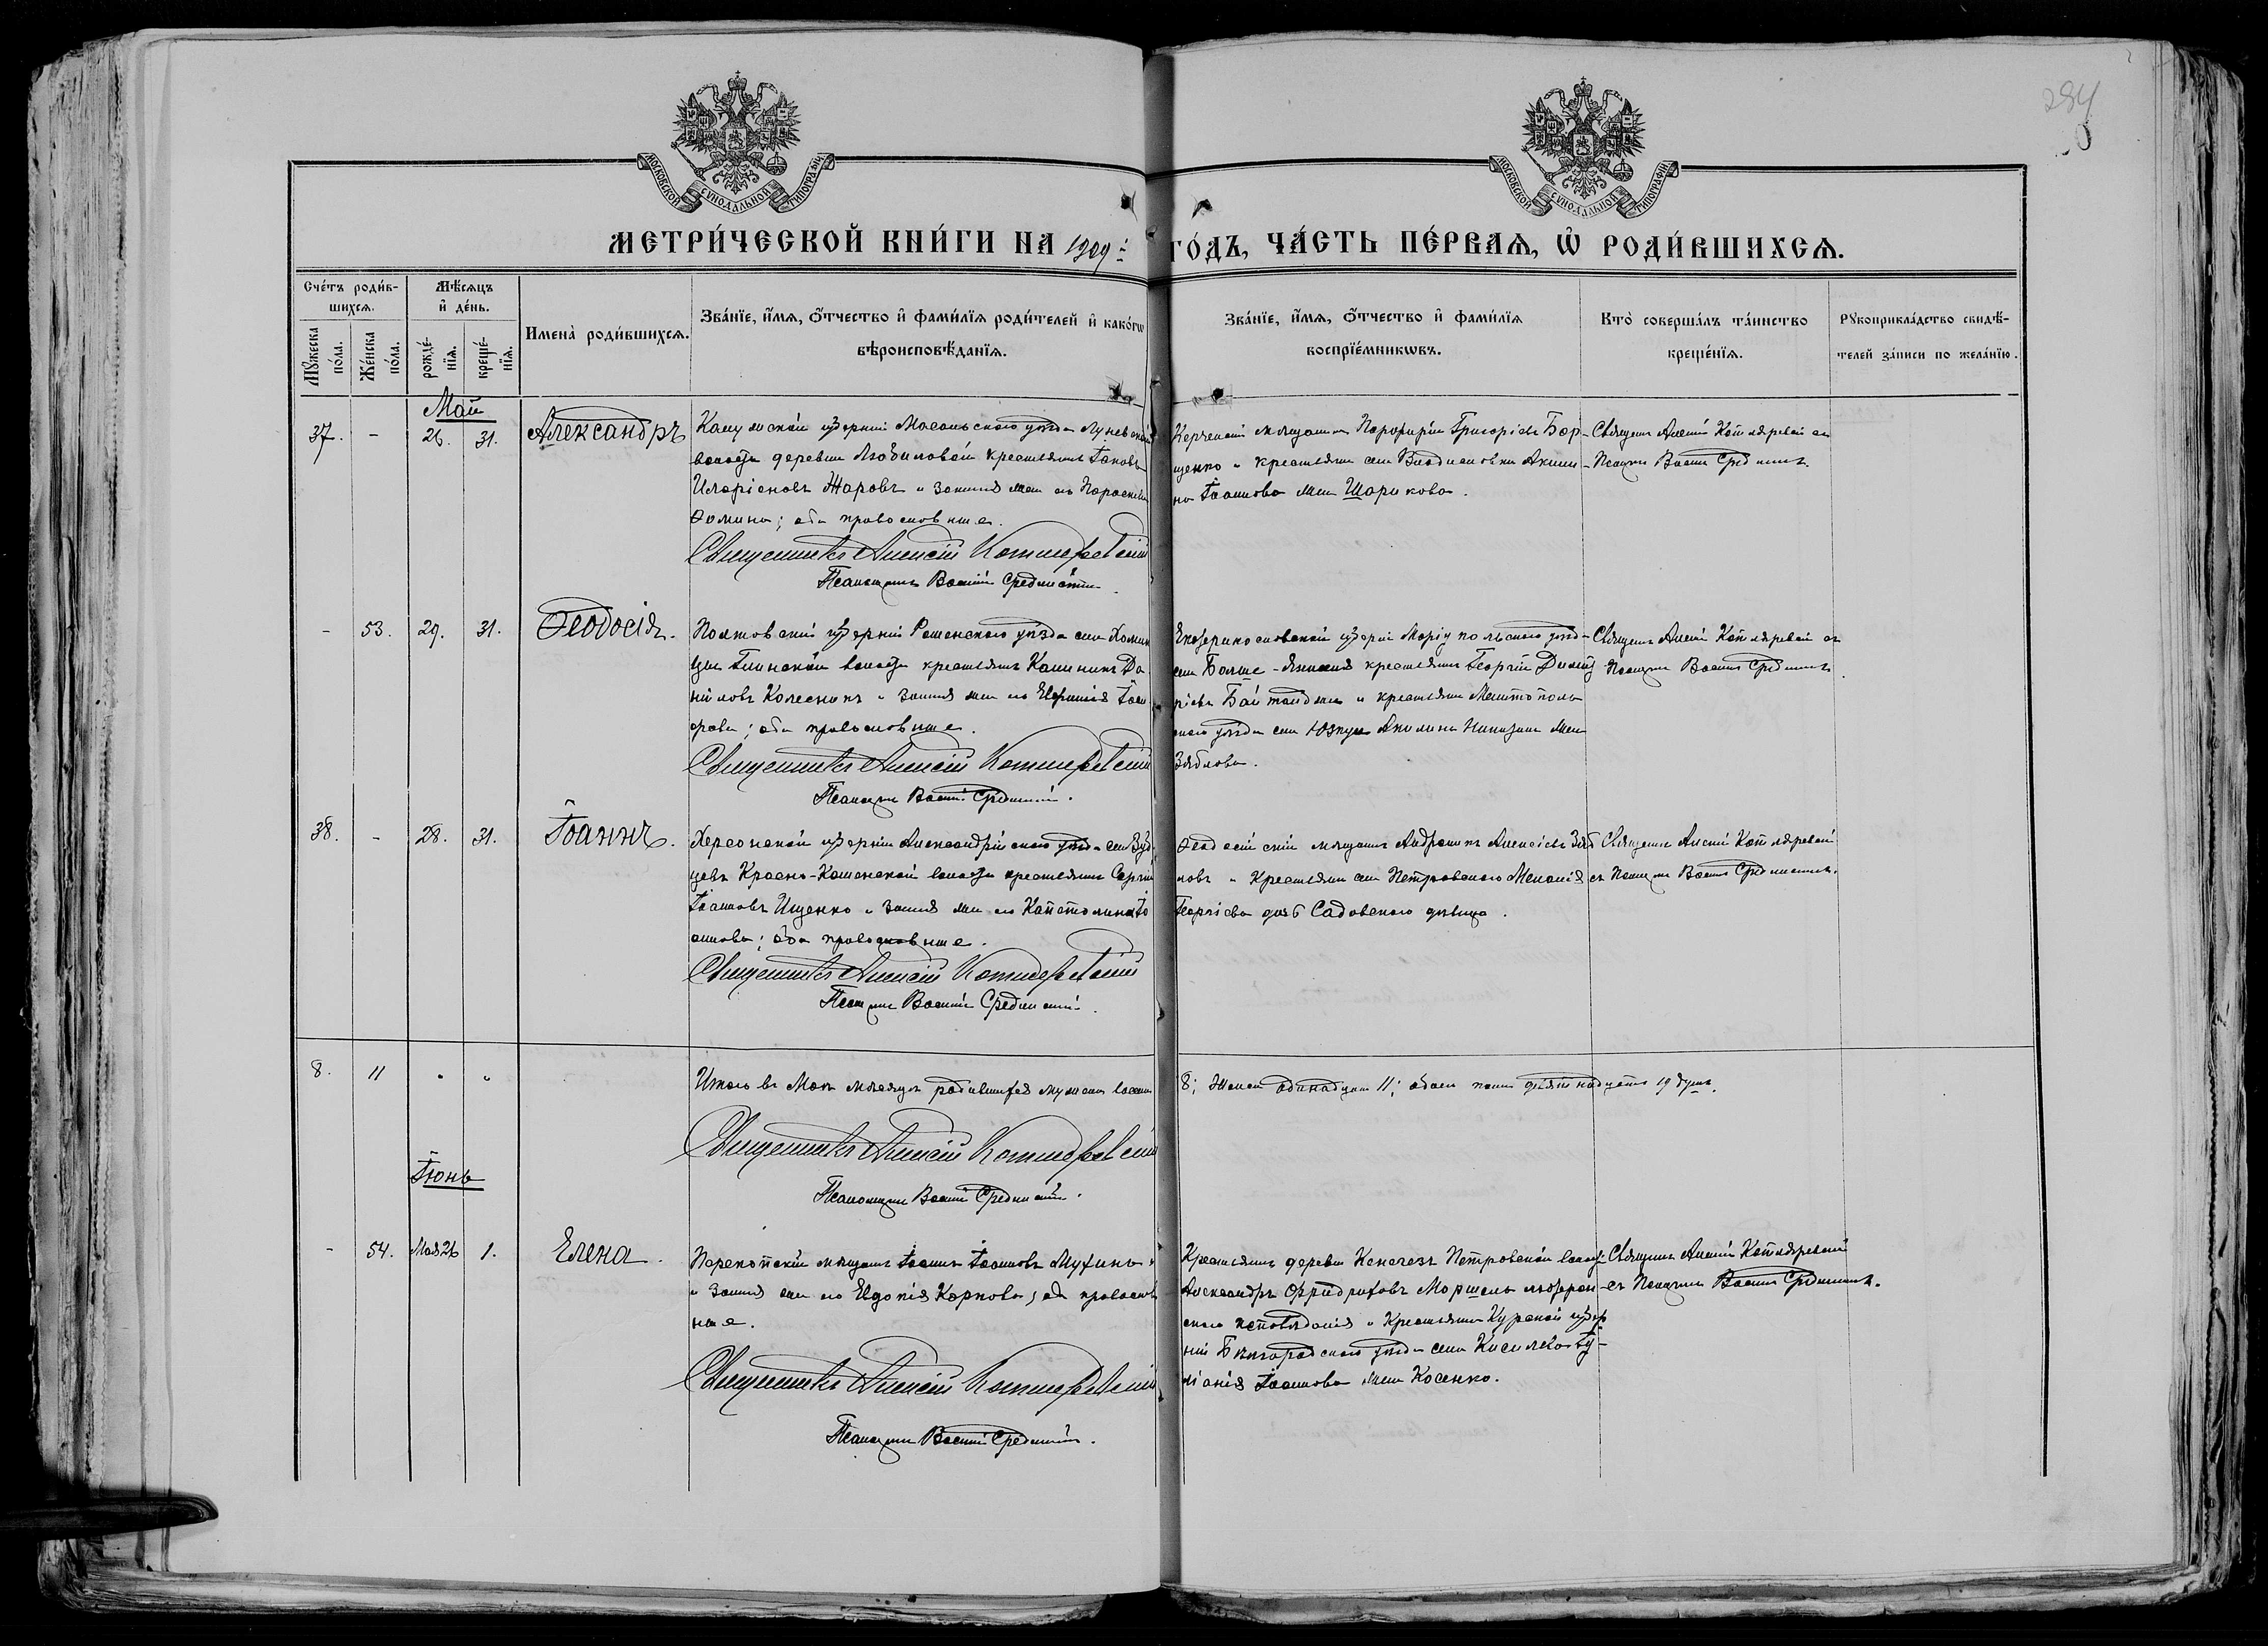 284
МОСКОВСКОЙ СѴНОДАЛЬНОЙ ТИПОГРАФІИ
МОСКОВСКОЙ СѴНОДАЛЬНОЙ ТИПОГРАФІИ
МЕТРИ́ЧЕСКОЙ КНИ́ГИ НА 1909 ГО́ДЪ, ЧА́СТЬ ПЕ́РВАѦ, Ѡ РОДИ́ВШИХСѦ.
Сче́тъ роди́в-
шихсѧ.
Мꙋ́жеска
по́ла.
Же́нска
по́ла.
Мѣ́сѧцъ
и҆ де́нь.
рожде́-
нїѧ.
креще́-
нїѧ.
Имена̀ роди́вшихсѧ.
Зва́нїе, и҆́мѧ, ѻ҆́тчество и҆ фами́лїѧ роди́телей и҆ како́гѡ
вѣроисповѣ́данїѧ.
Зва́нїе, и҆́мѧ, ѻ҆́тчество и҆ фами́лїѧ
воспрїе́мникѡвъ.
Кто̀ соверша́лъ та́инство
креще́нїѧ.
Рꙋкоприкла́дство свидѣ́-
телей за́писи по жела́нїю.
Май
37. - 26. 31. Александръ
Калужской губерніи Масальскаго уѣзда
волости деревни Любиловой крестьянинъ Іаковъ
Иларіоновъ Жаровъ и законная жена его Параскева
Ѳомина; оба православные.
Священникъ Алексій Котляревскій
Псаломщикъ Василій
Керченскій мѣщанинъ Порфирій Григоріевъ Бор-
щенко и крестьянка села Владиславовки Акили-
на Іоаннова Шарикова.
Священ. Алексій Котляревскій съ
Псаломщ. Василіемъ
- 53. 29. 31. Ѳеодосія.
Полтавской губерніи Роменскаго уѣзда села
Глинской волости крестьянинъ Калиникъ Да
ниловъ Колесникъ и законная жена его Евфимія
оба православные.
Священникъ Алексій Котляревскій
Псаломщ. Василій
Екатеринославской губерніи Маріупольскаго уѣзда
села Больше-Янисоль крестьянинъ Георгій Димит
ріевъ и крестьянка Мелитополь
скаго уѣзда села Акилина
Зяблова.
Священ. Алексій Котляревскій съ
Псаломщ. Василіемъ
38. - 28. 31. Іоаннъ.
Херсонской губерніи Александрійскаго уѣзда села
Красно-Каменской волости крестьянинъ Сергій
Іоанновъ Ищенко и законная жена его Капетолина Іо
аннова; оба православные.
Священникъ Алексій Котляревскій
Псаломщ. Василій
Ѳеодосійскій мѣщанинъ Андроникъ Алексіевъ Зяб
ловъ и крестьянка села Петровскаго Меланія
Георгіева Садовскаго дѣвица.
Священ. Алексій Котляревскій
съ Псаломщ. Василіемъ
8. 11 " "
Итого въ Маѣ мѣсяцѣ родившихся мужеска восемь
8; Женска одинадцать 11; обоего пола девятнадцать 19 душъ.
Священникъ Алексій Котляревскій
Псаломщикъ Василій
Іюнь
- 54. Мая 26 1. Елена.
Перекопскій мѣщанинъ Іоаннъ Іоанновъ Мухинъ
и законная жена его Евдокія Карпова; оба православ
ные.
Священникъ Алексій Котляревскій
Псаломщ. Василій
Крестьянинъ деревни Кенегезъ Петровской волости
Александръ Фридриховъ лютеран-
скаго исповѣданія и крестьянка Курской губер
ніи Бѣлгородскаго уѣзда села Іу-
ліанія Іоаннова Косенко.
Священ. Алексій Котляревскій
съ Псаломщ. Василіемъ